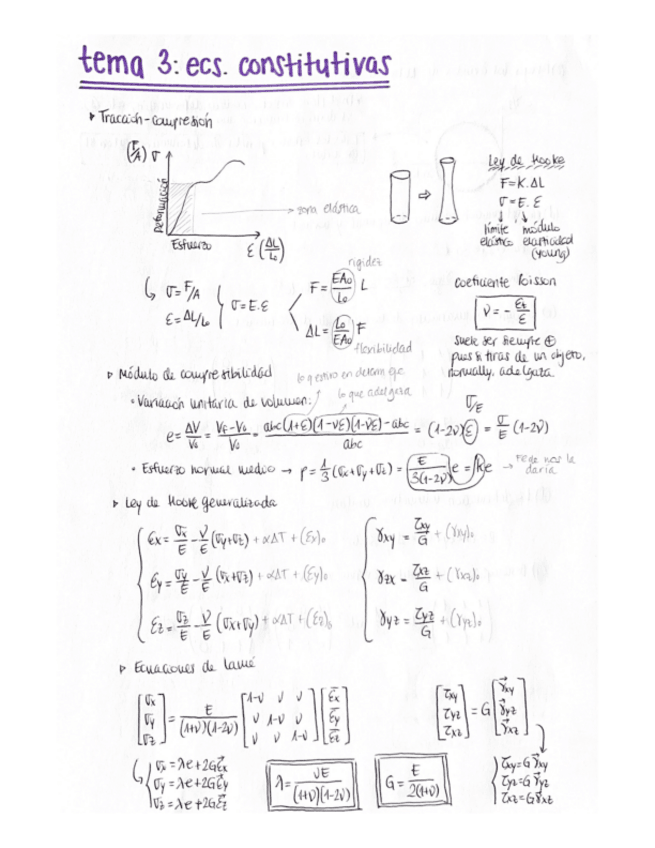 tema 3: ecs. constitutivas
▸ Tracción-compresión
(F/A) σ
Deformación
Esfuerzo
ε (ΔL/L₀)
→ zona elástica
Ley de Hooke
F=K.ΔL
σ=E.ε
límite elástico
módulo elasticidad (young)
σ=F/A
ε=ΔL/L₀
σ=E.ε
rigidez
F= EA₀/L₀ L
ΔL= L₀/EA₀ F
flexibilidad
coeficiente Poisson
ν=-εt/ε
Suele ser siempre ⊕
pues si tiras de un objeto,
normally, adelgaza
▸ Módulo de compresibilidad
lo q estiro en determ eje
lo que adelgaza
• Variación unitaria de volumen:
σ/E
e= ΔV/V₀ = VF-V₀/V₀ = abc(1+ε)(1-νε)(1-νε)-abc/abc = (1-2ν)ε = σ/E (1-2ν)
• Esfuerzo normal medio → p=1/3(σx+σy+σz) = E/3(1-2ν) e = ke → Fede nos la daría
▸ Ley de Hooke generalizada
εx= σx/E - ν/E (σy+σz) + αΔT + (εx)₀
γxy = τxy/G + (γxy)₀
εy= σy/E - ν/E (σx+σz) + αΔT + (εy)₀
γzx = τxz/G + (γxz)₀
εz= σz/E - ν/E (σx+σy) + αΔT + (εz)₀
γyz = τyz/G + (γyz)₀
▸ Ecuaciones de Lamé
[σx σy σz] = E/(1+ν)(1-2ν) [1-ν ν ν / ν 1-ν ν / ν ν 1-ν] [εx εy εz]
[τxy τyz τxz] = G [γxy γyz γxz]
σx = λe+2Gεx
σy = λe+2Gεy
σz = λe+2Gεz
λ= νE/(1+ν)(1-2ν)
G= E/2(1+ν)
τxy=Gγxy
τyz=Gγyz
τxz=Gγxz